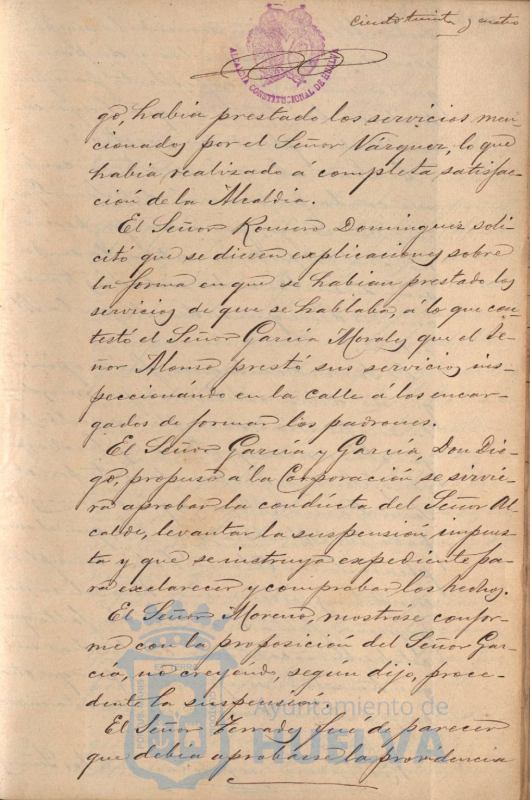 Ciento treinta y cuatro
ALCALDIA CONSTITUCIONAL DE HUELVA
go, habia prestado los servicios men-
cionados por el Señor Vázquez, lo que
habia realizado á completa satisfac-
ción de la Alcaldia.
El Señor Romero Dominguez soli-
citó que se diesen explicaciones sobre
la forma en que se habian prestado los
servicios de que se hablaba, á lo que con-
testó el Señor García Morales que el Se-
ñor Alonso prestó sus servicios ins-
peccionándo en la calle á los encar-
gados de formar los padrones.
El Señor García y García, Don Die-
go, propuso á la Corporación se sirvie-
ra aprobar la condúcta del Señor Al-
calde, levantar la suspensión impues-
ta y que se instruya expediente pa-
ra exclarecer y comprobar los hechos.
El Señor Moreno, mostróse confor-
me con la proposición del Señor Gar-
cía, no creyendo, según dijo, proce-
dente la suspensión.
El Señor Terrades fué de parecer
que debia aprobarse la providencia
Ayuntamiento de
HUELVA